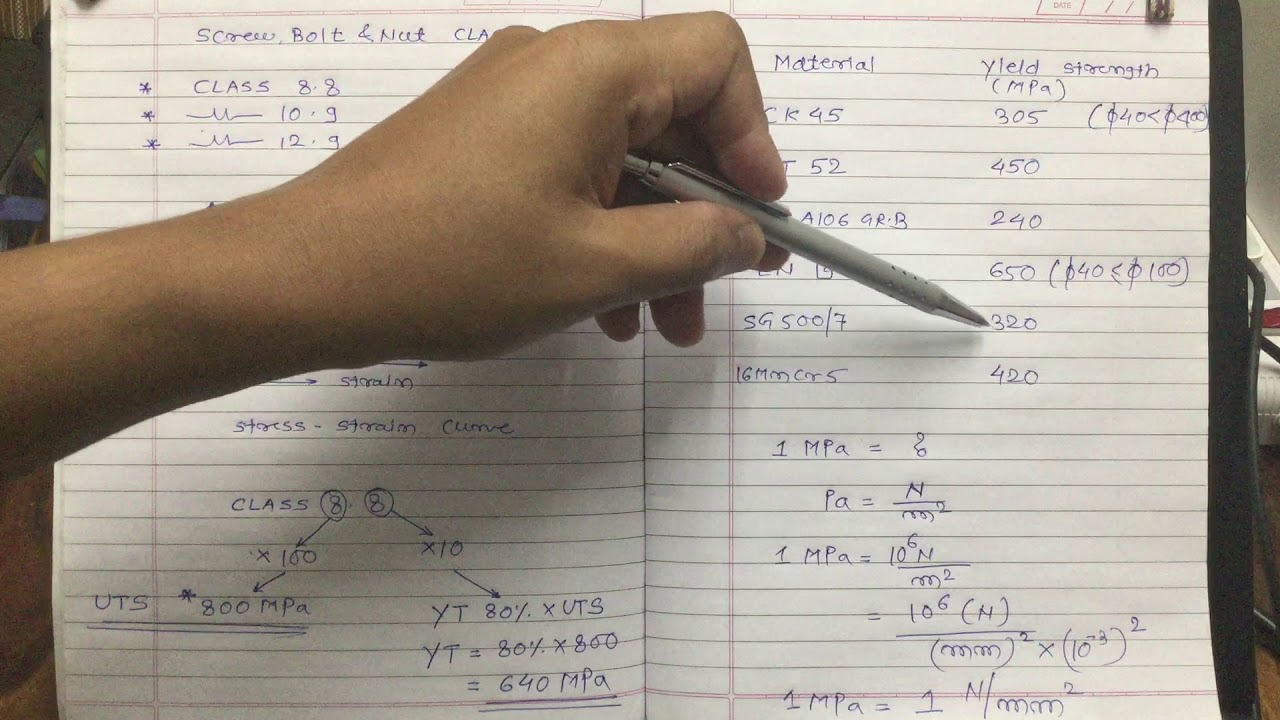 Screw, Bolt & Nut
* CLASS 8.8
* –〃– 10.9
* –〃– 12.9
strain
stress - strain curve
CLASS 8.8
×100 ×10
UTS * 800 MPa
YT 80% × UTS
YT = 80% × 800
= 640 MPa
DATE
Material Yield strength
(MPa)
CK 45 305 (ϕ40<ϕ400)
52 450
A106 GR.B 240
650 (ϕ40<ϕ100)
SG 500/7 320
16MnCr5 420
1 MPa = ?
Pa = N/m²
1 MPa = 10⁶ N/m²
= 10⁶ (N)/(mm)² × (10⁻³)²
1 MPa = 1 N/mm²